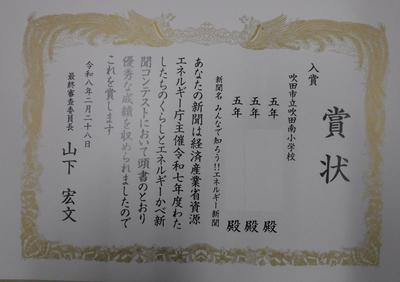 賞状
入賞
吹田市立吹田南小学校
五年 殿
五年 殿
五年 殿
新聞名 みんなで知ろう!!エネルギー新聞
あなたの新聞は経済産業省資源
エネルギー庁主催令和七年度わた
したちのくらしとエネルギーかべ新
聞コンテストにおいて頭書のとおり
優秀な成績を収められましたので
これを賞します
令和八年二月二十八日
最終審査委員長 山下 宏文